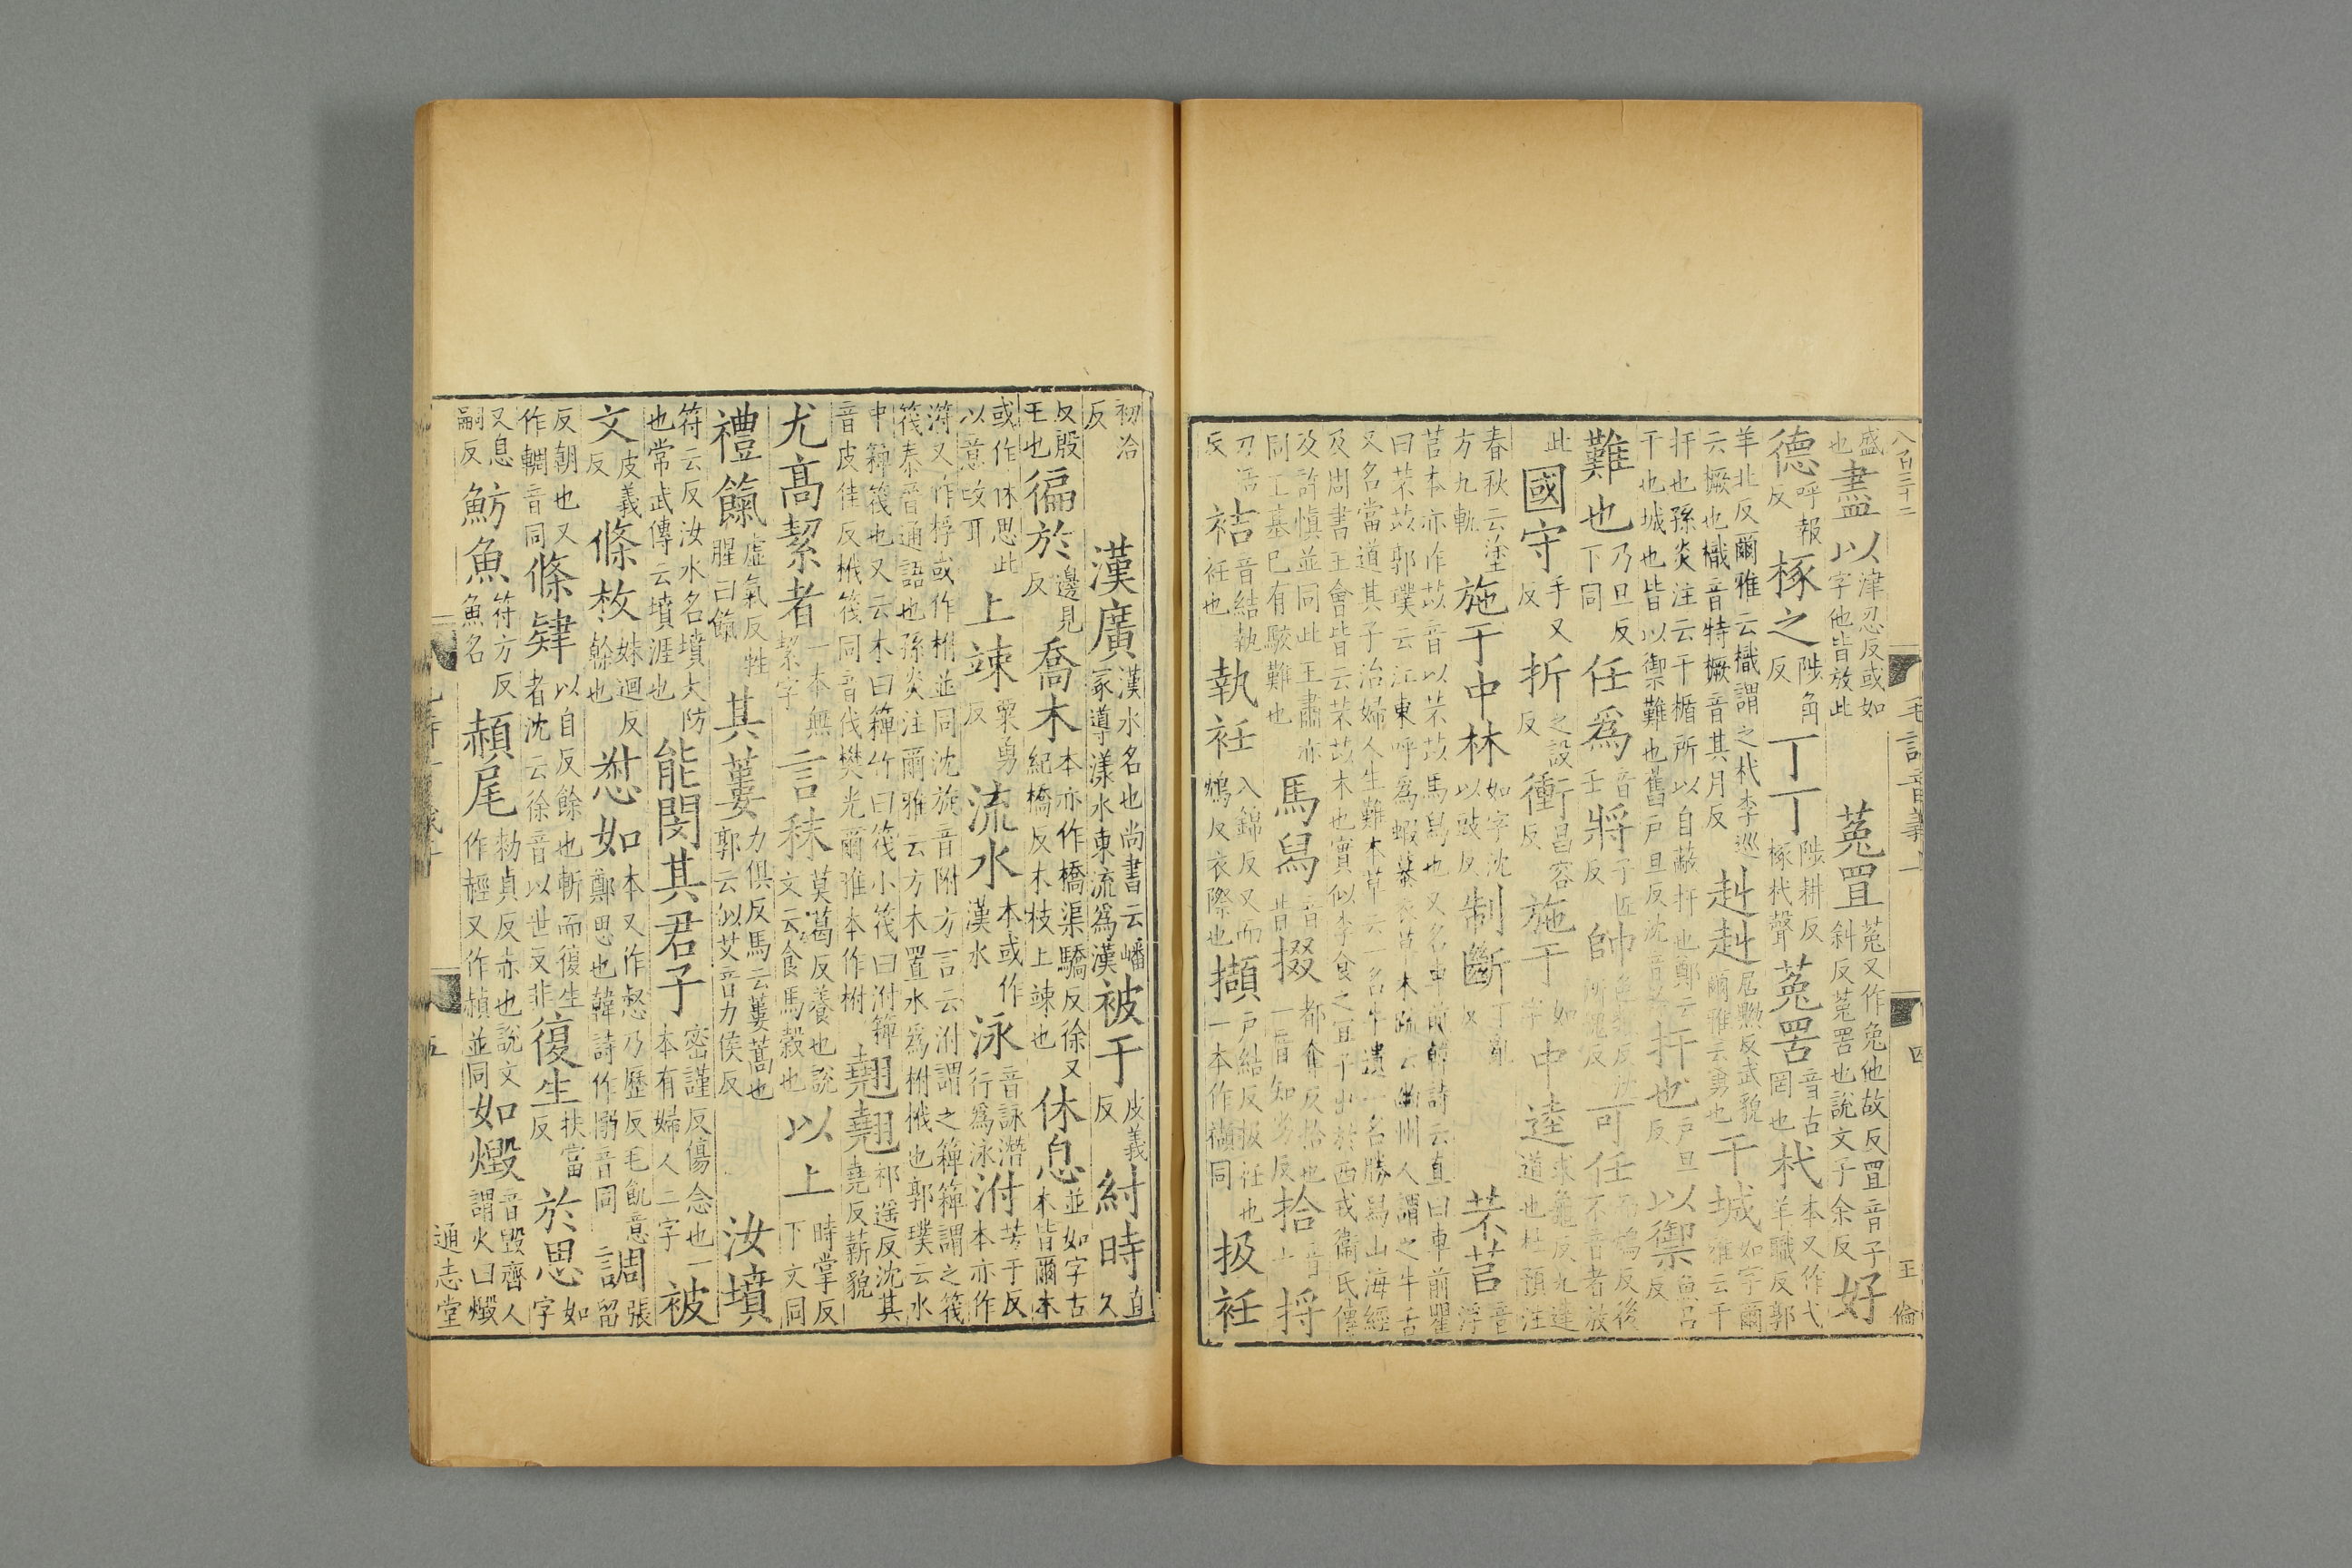 八百三十二 毛詩音義上 四 王倫
盛也盡以津忍反或如字他皆放此 菟罝菟又作兔他故反罝音子斜反菟罟也說文子余反好
德呼報反椓之陟角反丁丁陟耕反椓杙聲菟罟音古罔也杙本又作弋羊職反郭
羊北反爾雅云樴謂之杙李巡云橛也樴音特橛音其月反赳赳居黝反武貌爾雅云勇也干城如字爾雅云干
扞也孫炎注云干楯所以自蔽扞也鄭云干也城也皆以禦難也舊戶旦反沈音扞也戶旦反以禦魚呂反
難也乃旦反下同任爲音壬將子匠反帥色類反沈所愧反可任而鴆反後不音者放
此國守手又反折之設反衝昌容反施于如字中逵求龜反九達道也杜預注
春秋云塗方九軌施于中林如字沈以豉反制斷丁亂反 芣苢音浮
苢本亦作苡音以芣苡馬舄也又名車前韓詩云直曰車前瞿曰芣苡郭璞云江東呼爲蝦蟇衣草木疏云幽州人謂之牛舌
又名當道其子治婦人生難本草云一名牛遺一名勝舄山海經及周書王會皆云芣苡木也實似李食之宜子出於西戎衞氏傳
及許慎並同此王肅亦同王基已有駮難也馬舄音昔掇都奪反拾也一音知劣反拾音十捋
力活反袺音結執衽也執衽入錦反又而鴆反衣際也擷戶結反扱衽也一本作襭同扱衽
初洽反 漢廣漢水名也尚書云嶓冢導漾水東流爲漢被于皮義反紂時直久
反殷王也徧於邊見反喬木本亦作橋渠驕反徐又紀橋反木枝上竦也休息並如字古本皆爾本
或作休思此以意改耳上竦粟勇反流水本或作漢水泳音詠潛行爲泳泭芳于反本亦作
㳇又作桴或作柎並同沈旋音附方言云泭謂之䉬䉬謂之筏筏秦音通語也孫炎注爾雅云方木置水爲柎栰也郭璞云水
中䉬筏也又云木曰䉬竹曰筏小筏曰泭䉬音皮佳反栰筏同音伐樊光爾雅本作柎翹翹祁遥反沈其堯反薪貌
尤高絜者一本無絜字言秣莫葛反養也說文云食馬穀也以上時掌反下文同
禮餼虛氣反牲腥曰餼其蔞力俱反馬云蔞蒿也郭云似艾音力侯反 汝墳
符云反汝水名墳大防也常武傳云墳涯也能閔其君子密謹反傷念也一本有婦人二字被
文皮義反條枚妹迴反榦也惄如本又作𢝊乃歷反毛飢意鄭思也韓詩作愵音同調張留
反朝也又作輖音同條肄以自反餘也斬而復生者沈云徐音以世反非復生扶富反於思如字
又息嗣反魴魚符方反魚名赬尾勑貞反赤也說文作䞓又作赪並同如燬音毀齊人謂火曰燬
五 通志堂